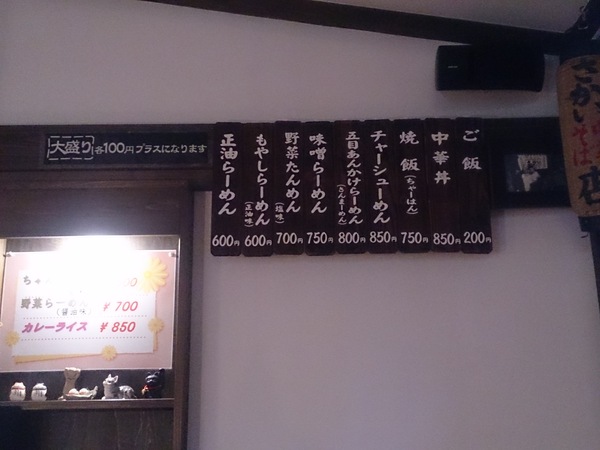 大盛り各100円プラスになります
ご飯 200円
中華丼 850円
焼飯(ちゃーはん) 750円
チャーシューめん 850円
五目あんかけらーめん(さんまーめん) 800円
味噌らーめん 750円
野菜たんめん(塩味) 700円
もやしらーめん(正油味) 600円
正油らーめん 600円
野菜らーめん ¥700
(醤油味)
カレーライス ¥850